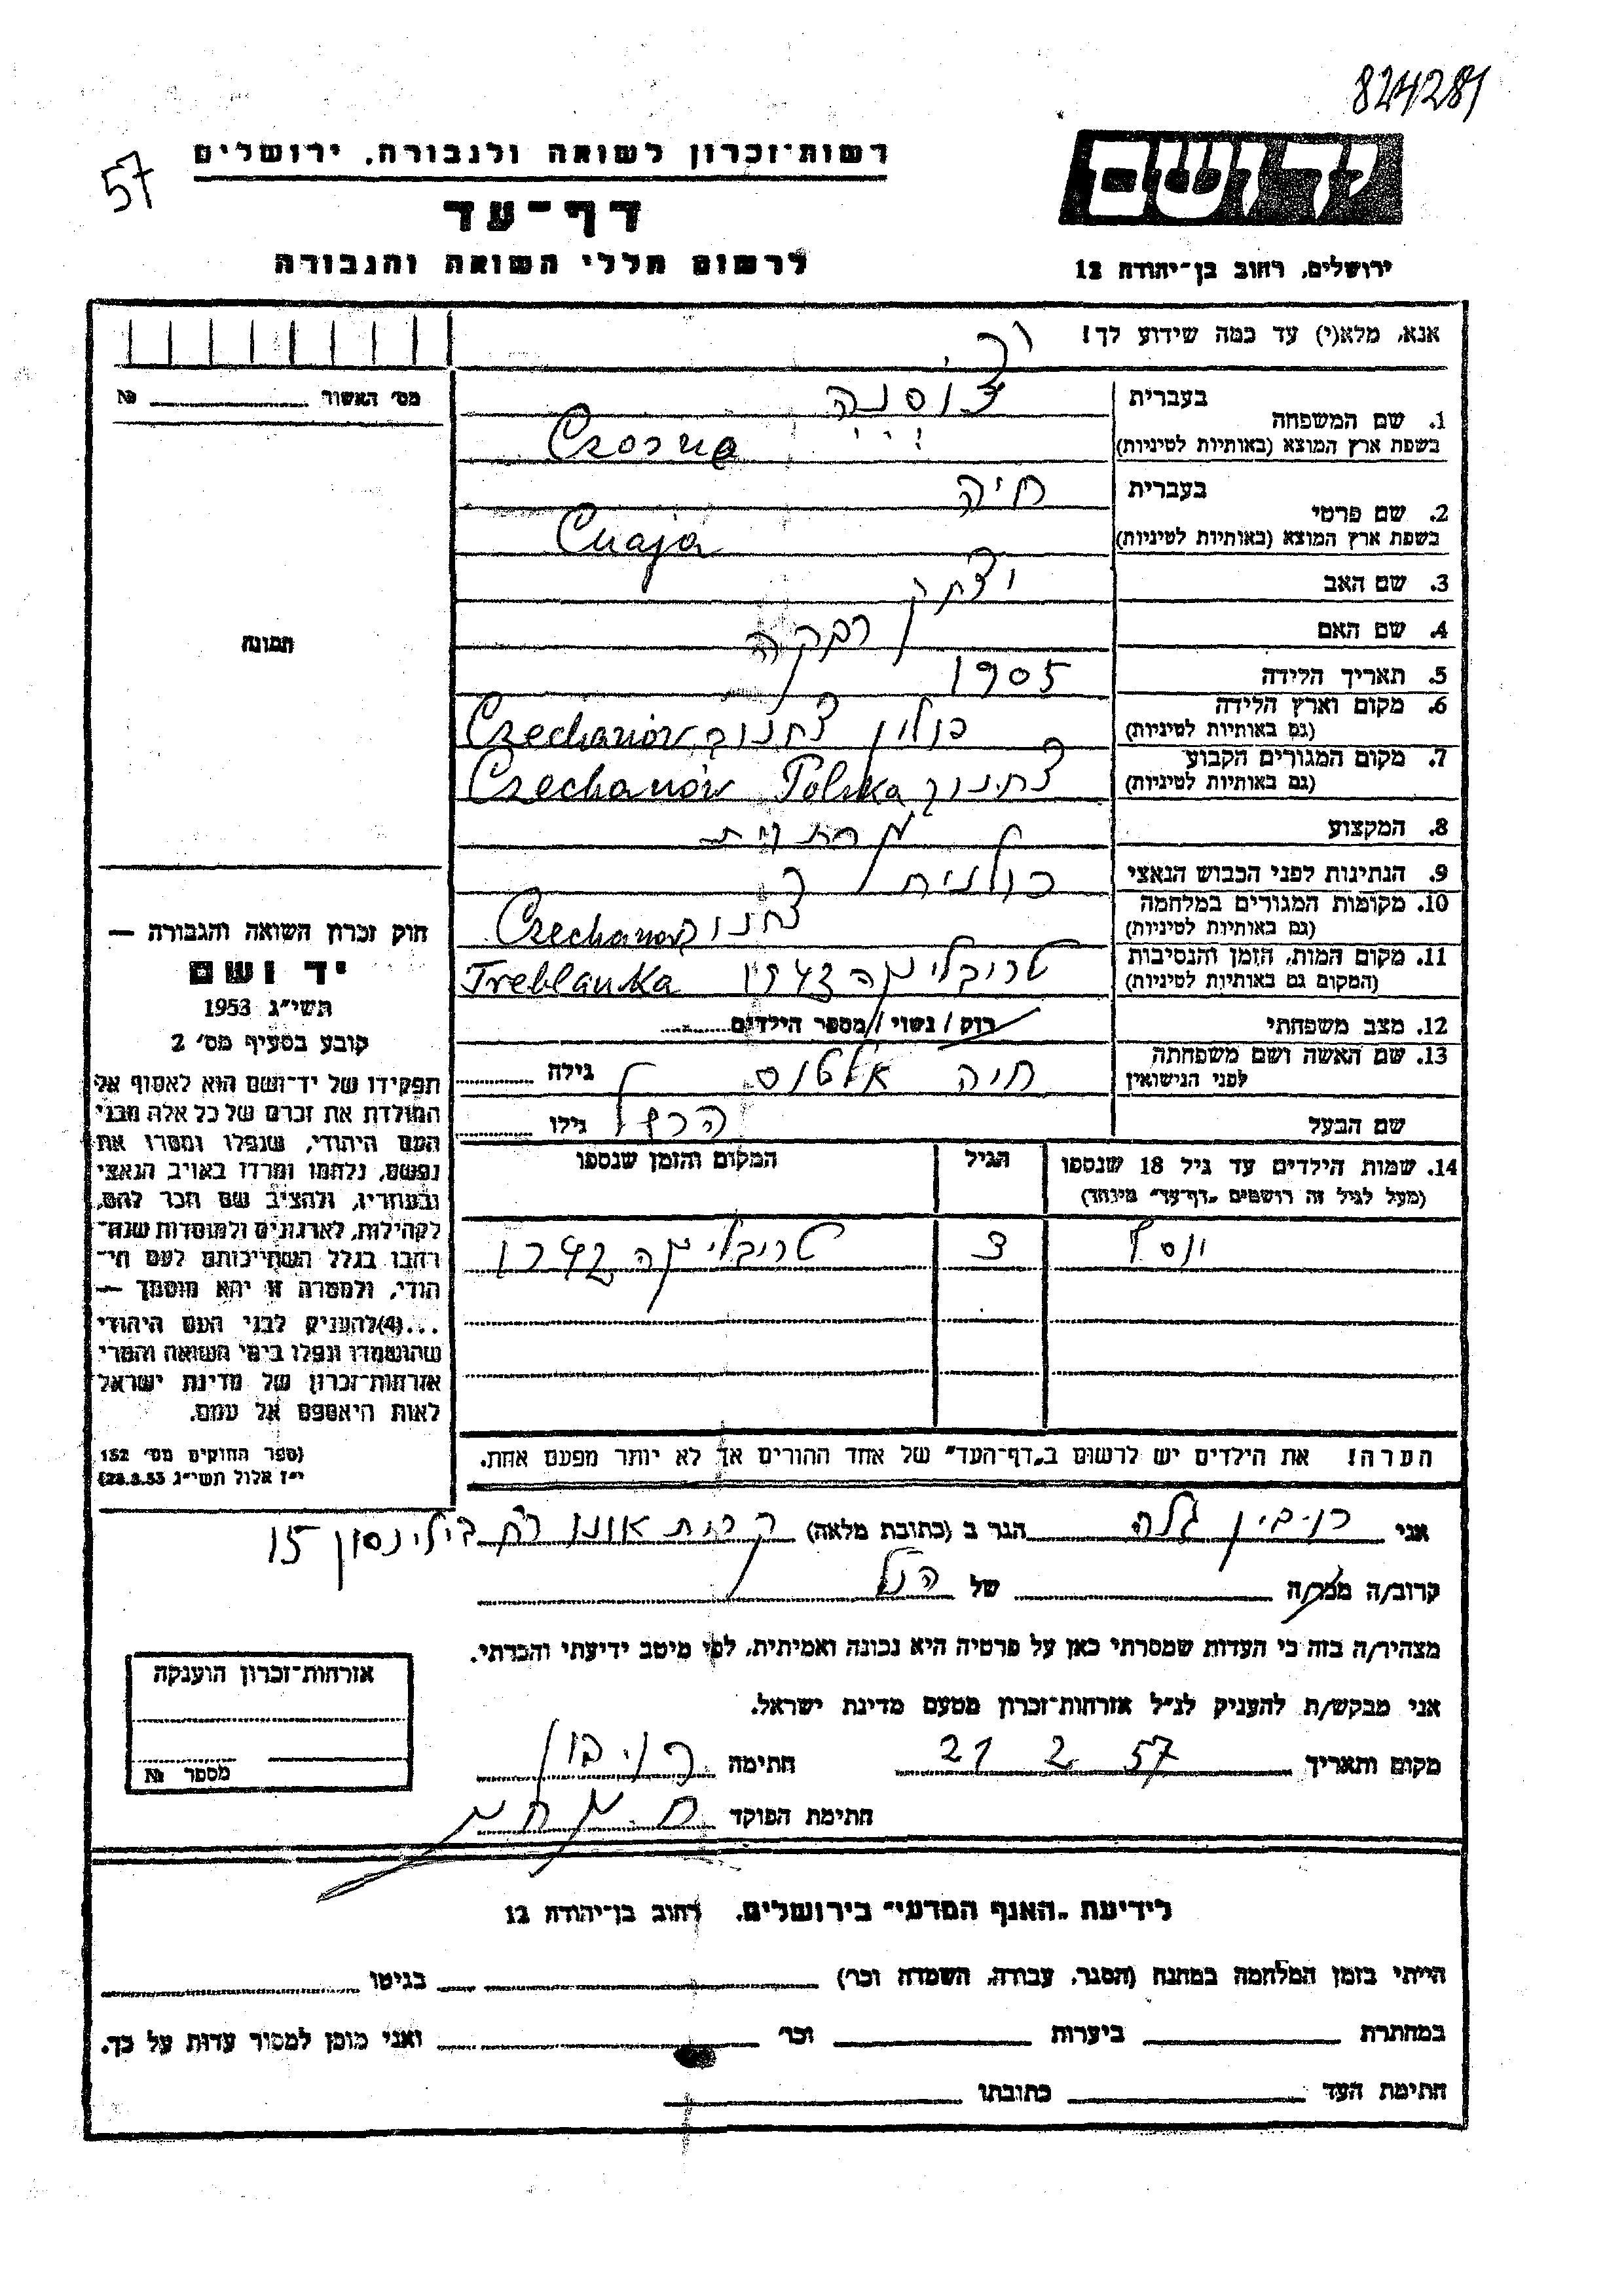 824281
57
רשות־זכרון לשואה ולגבורה, ירושלים
דף־עד
לרשום חללי השואה והגבורה
יד ושם
ירושלים, רחוב בן־יהודה 12
אנא, מלא(י) עד כמה שידוע לך!
מס' האשור № 
1. שם המשפחה בעברית
בשפת ארץ המוצא (באותיות לטיניות) Czosna
2. שם פרטי בעברית חיה
בשפת ארץ המוצא (באותיות לטיניות) Chaja
3. שם האב יצחק
4. שם האם רבקה
5. תאריך הלידה 1905
6. מקום וארץ הלידה פולין צחנוב Czechanów
(גם באותיות לטיניות)
7. מקום המגורים הקבוע צחנוב Czechanów Polska
(גם באותיות לטיניות)
8. המקצוע
9. הנתינות לפני הכבוש הנאצי פולנית
10. מקומות המגורים במלחמה צחנוב Czechanow
(גם באותיות לטיניות)
11. מקום המות, הזמן והנסיבות טריבלינקה Treblanka
(המקום גם באותיות לטיניות)
12. מצב משפחתי רוק / נשוי / מספר הילדים
13. שם האשה ושם משפחתה חיה גילה
לפני הנישואין
שם הבעל גילו
14. שמות הילדים עד גיל 18 שנספו הגיל המקום והזמן שנספו
(מעל לגיל זה רושמים "דף־עד" מיוחד)
יוסף 3 טריבלינקה 1942
הערה! את הילדים יש לרשום ב"דף־העד" של אחד ההורים אך לא יותר מפעם אחת.
תמונה
חוק זכרון השואה והגבורה —
יד ושם
תשי"ג 1953
קובע בסעיף מס' 2
תפקידו של יד־ושם הוא לאסוף אל
המולדת את זכרם של כל אלה מבני
העם היהודי, שנפלו ומסרו את
נפשם, נלחמו ומרדו באויב הנאצי
ובעוזריו, ולהציב שם וזכר להם,
לקהילות, לארגונים ולמוסדות שנח־
רבו בגלל השתייכותם לעם הי־
הודי, ולמטרה זו יהא מוסמך —
...(4) להעניק לבני העם היהודי
שהושמדו ונפלו בימי השואה והמרי
אזרחות־זכרון של מדינת ישראל
לאות היאספם אל עמם.
(ספר החוקים מס' 132
י"ז אלול תשי"ג 28.8.53)
אני רובין גלה הגר ב (כתובת מלאה) קרית אונו רח בילינסון 15
קרוב/ה מכר/ה של הנ"ל
מצהיר/ה בזה כי העדות שמסרתי כאן על פרטיה היא נכונה ואמיתית, לפי מיטב ידיעתי והכרתי.
אני מבקש/ת להעניק לנ"ל אזרחות־זכרון מטעם מדינת ישראל.
מקום ותאריך 21 2 57 חתימה רובין
חתימת הפוקד
אזרחות־זכרון הוענקה
מספר №
לידיעת "האגף המדעי" בירושלים, רחוב בן־יהודה 12
הייתי בזמן המלחמה במחנה (הסגר, עבודה, השמדה וכו') בגיטו
במחתרת ביערות וכו' ואני מוכן למסור עדות על כך.
חתימת העד כתובתו